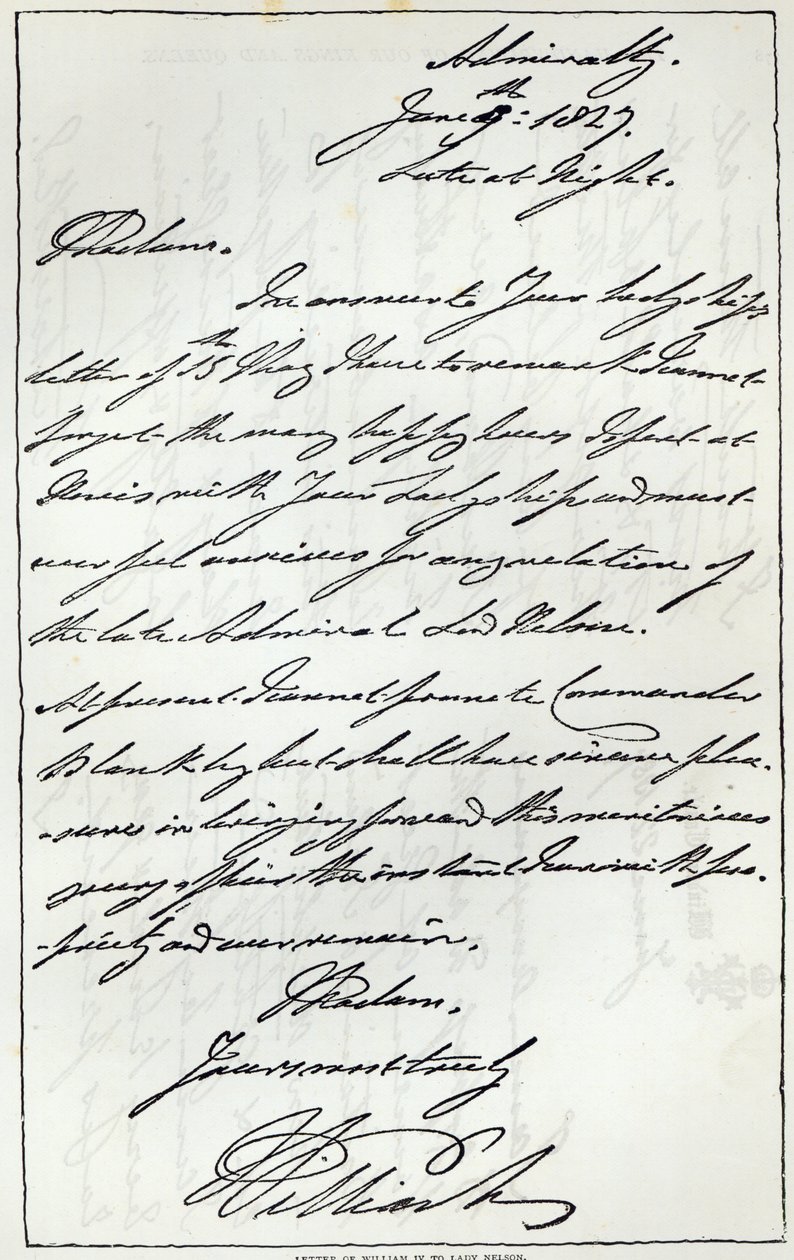 Admiralty.
June 9th: 1827.
Late at Night.
Madam.
In answer to Your Ladyship's
letter of 15th May I have to remark I cannot
forget the many happy hours I spent at
Nevis with Your Ladyship and must
ever feel anxious for any relation of
the late Admiral Lord Nelson.
At present I cannot promote Commander
Blanckley but shall have sincere plea-
-sure in bringing forward this meritorious
young officer the instant I can with pro-
-priety and ever remain,
Madam.
Yours most truly
William
LETTER OF WILLIAM IV TO LADY NELSON.